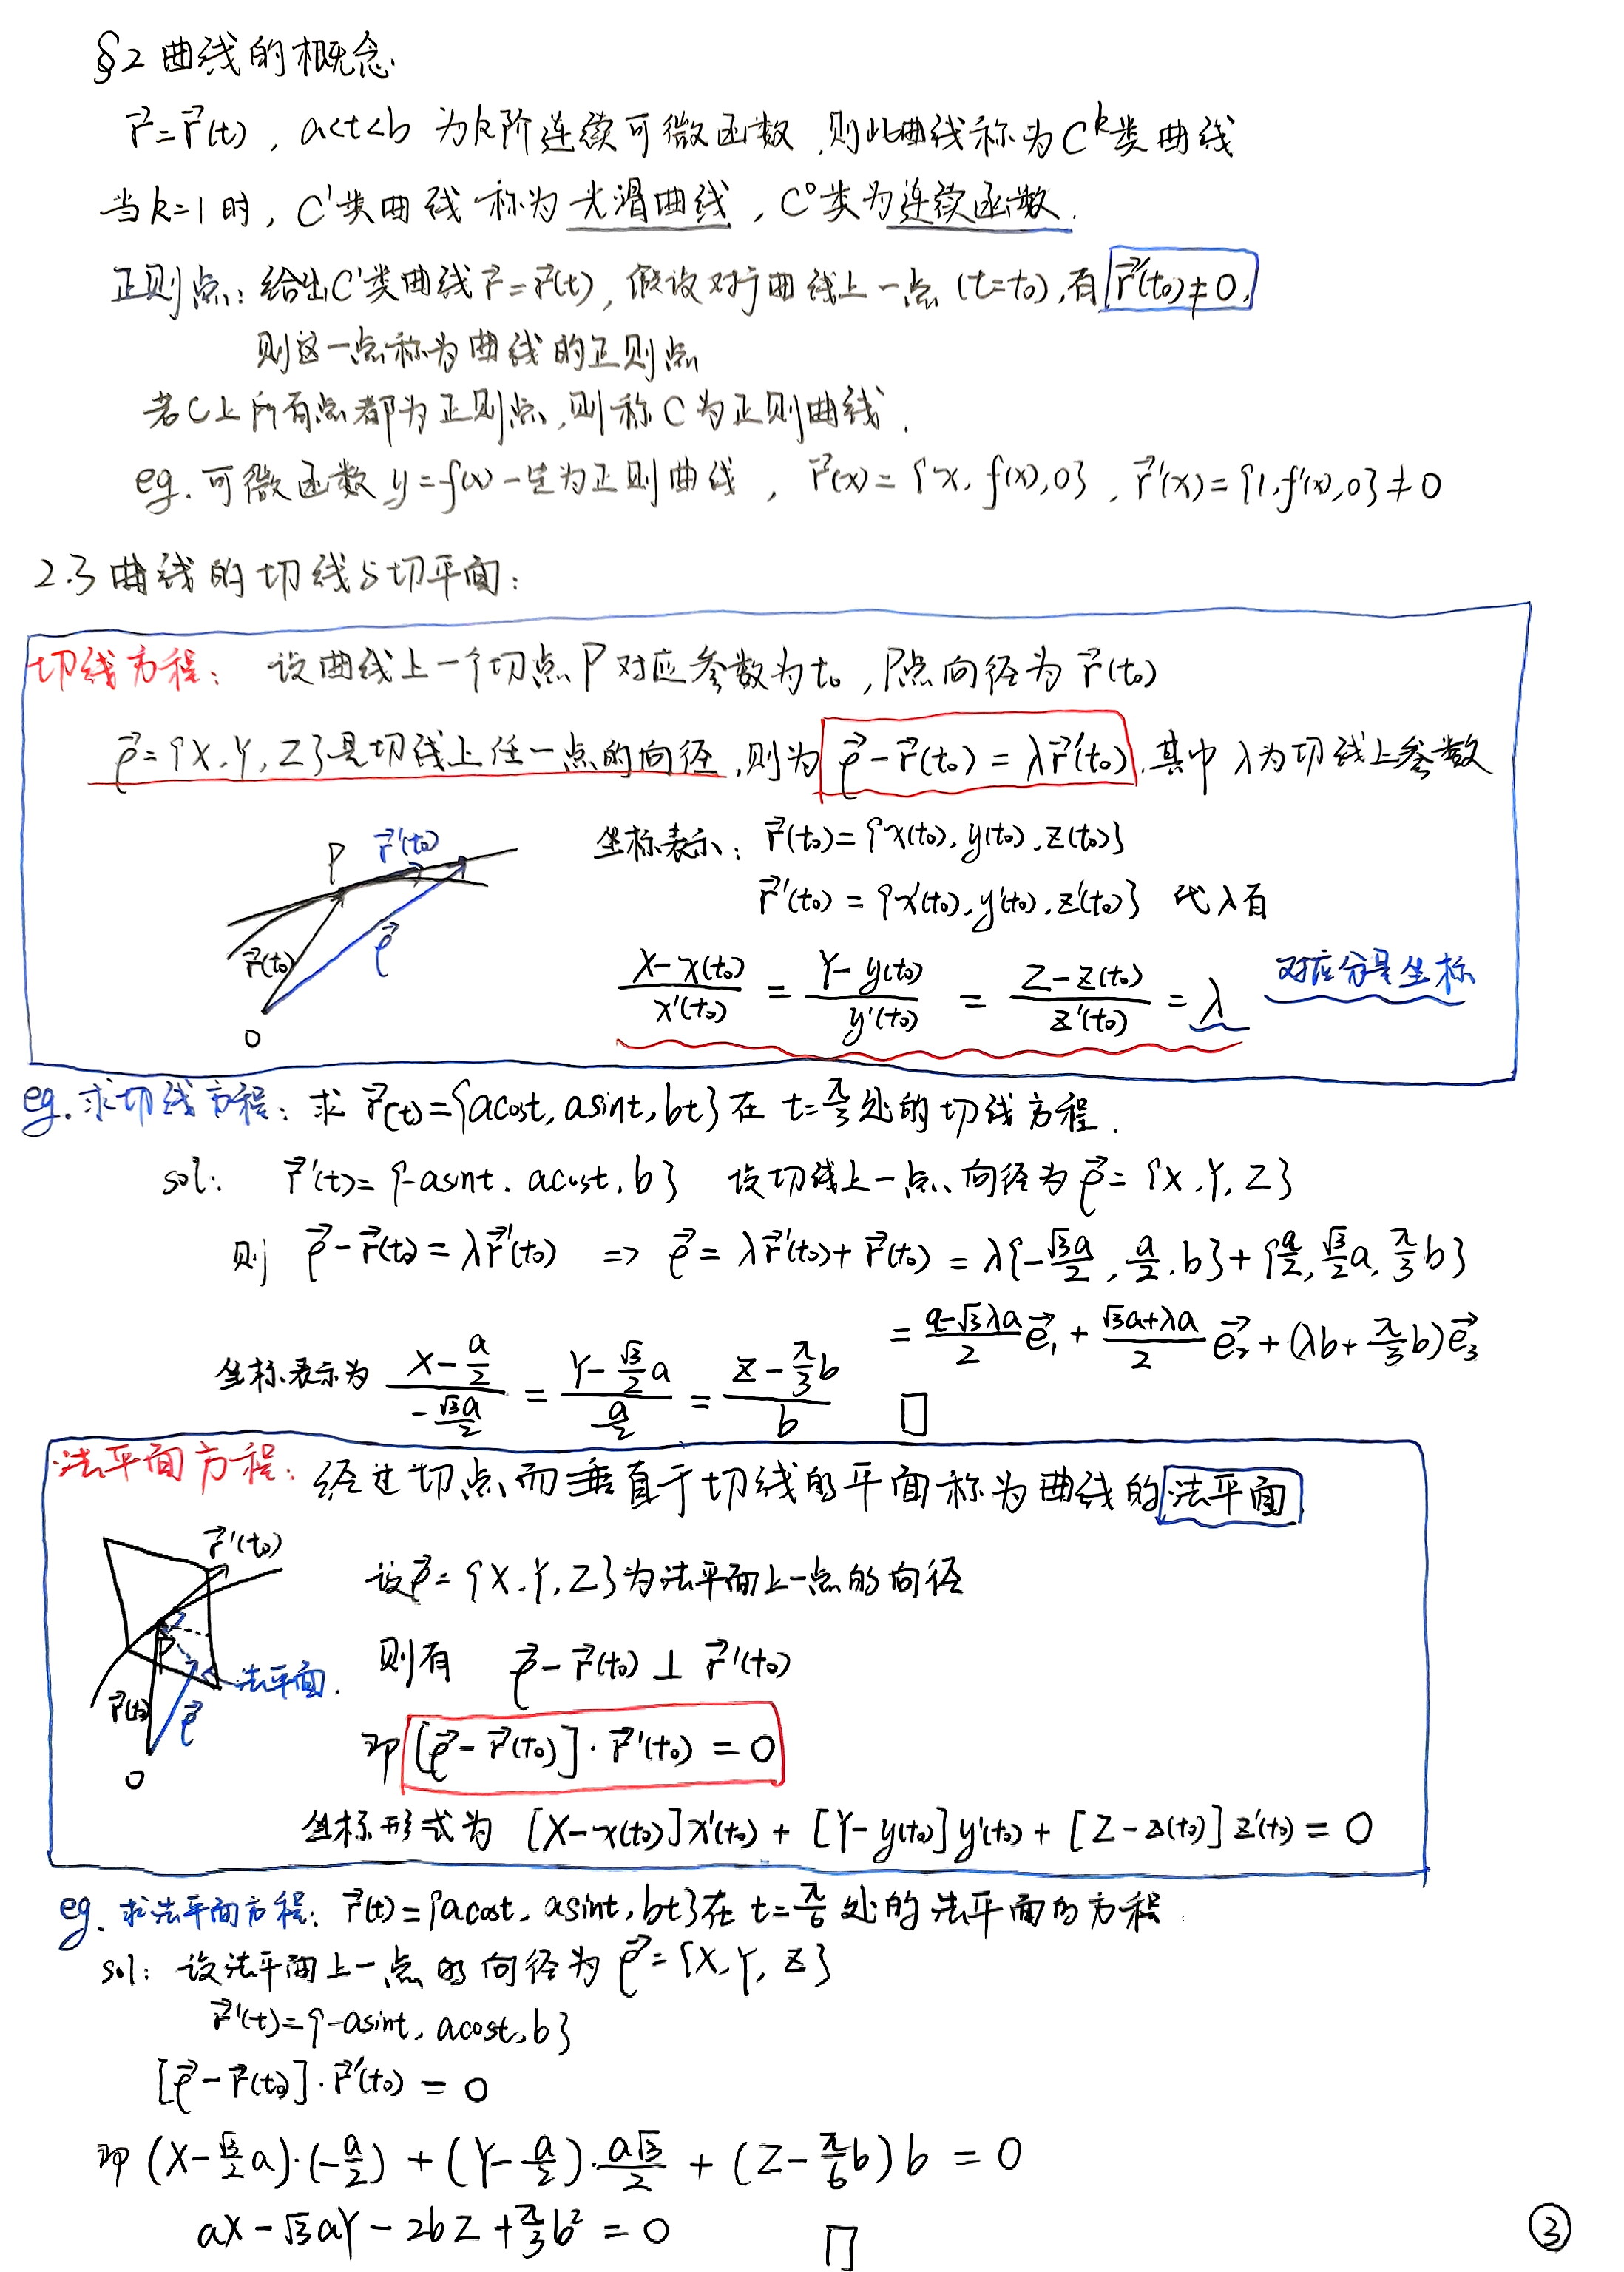 §2 曲线的概念.
r⃗=r⃗(t), a<t<b 为k阶连续可微函数,则此曲线称为C^k类曲线
当k=1时, C'类曲线称为光滑曲线, C°类为连续函数.
正则点: 给出C'类曲线r⃗=r⃗(t), 假设对于曲线上一点(t=t₀),有 r⃗'(t₀)≠0,
则这一点称为曲线的正则点
若C上所有点都为正则点,则称C为正则曲线.
eg. 可微函数 y=f(x)一定为正则曲线, r⃗(x)={x, f(x), 0}, r⃗'(x)={1, f'(x), 0}≠0
2.3 曲线的切线与切平面:
切线方程: 设曲线上一个切点P对应参数为t₀, P点向径为 r⃗(t₀)
ρ⃗={X,Y,Z}是切线上任一点的向径,则为 ρ⃗-r⃗(t₀)=λr⃗'(t₀).其中λ为切线上参数
P r⃗'(t₀)
r⃗(t₀) ρ⃗
O
坐标表示: r⃗(t₀)={x(t₀), y(t₀), z(t₀)}
r⃗'(t₀)={x'(t₀), y'(t₀), z'(t₀)} 代λ有
(X-x(t₀))/x'(t₀) = (Y-y(t₀))/y'(t₀) = (Z-z(t₀))/z'(t₀) = λ 对应分量坐标
eg. 求切线方程: 求 r⃗(t)={acost, asint, bt}在 t=π/3处的切线方程.
sol: r⃗'(t)={-asint, acost, b} 设切线上一点、向径为ρ⃗={X,Y,Z}
则 ρ⃗-r⃗(t₀)=λr⃗'(t₀) => ρ⃗=λr⃗'(t₀)+r⃗(t₀)=λ{-√3a/2, a/2, b}+{a/2, √3/2 a, π/3 b}
= (a-√3λa)/2 e⃗₁ + (√3a+λa)/2 e⃗₂ + (λb+π/3 b)e⃗₃
坐标表示为 (X-a/2)/(-√3a/2) = (Y-√3/2 a)/(a/2) = (Z-π/3 b)/b □
法平面方程: 经过切点而垂直于切线的平面称为曲线的法平面
r⃗'(t₀)
P
法平面.
r⃗(t₀) ρ⃗
O
设ρ⃗={X,Y,Z}为法平面上一点的向径
则有 ρ⃗-r⃗(t₀)⊥r⃗'(t₀)
即 [ρ⃗-r⃗(t₀)]·r⃗'(t₀)=0
坐标形式为 [X-x(t₀)]x'(t₀)+[Y-y(t₀)]y'(t₀)+[Z-z(t₀)]z'(t₀)=0
eg. 求法平面方程: r⃗(t)={acost, asint, bt}在 t=π/6 处的法平面的方程.
sol: 设法平面上一点的向径为 ρ⃗={X,Y,Z}
r⃗'(t)={-asint, acost, b}
[ρ⃗-r⃗(t₀)]·r⃗'(t₀)=0
即 (X-√3/2 a)·(-a/2)+(Y-a/2)·a√3/2+(Z-π/6 b)b=0
aX-√3aY-2bZ+π/3 b²=0 □
③